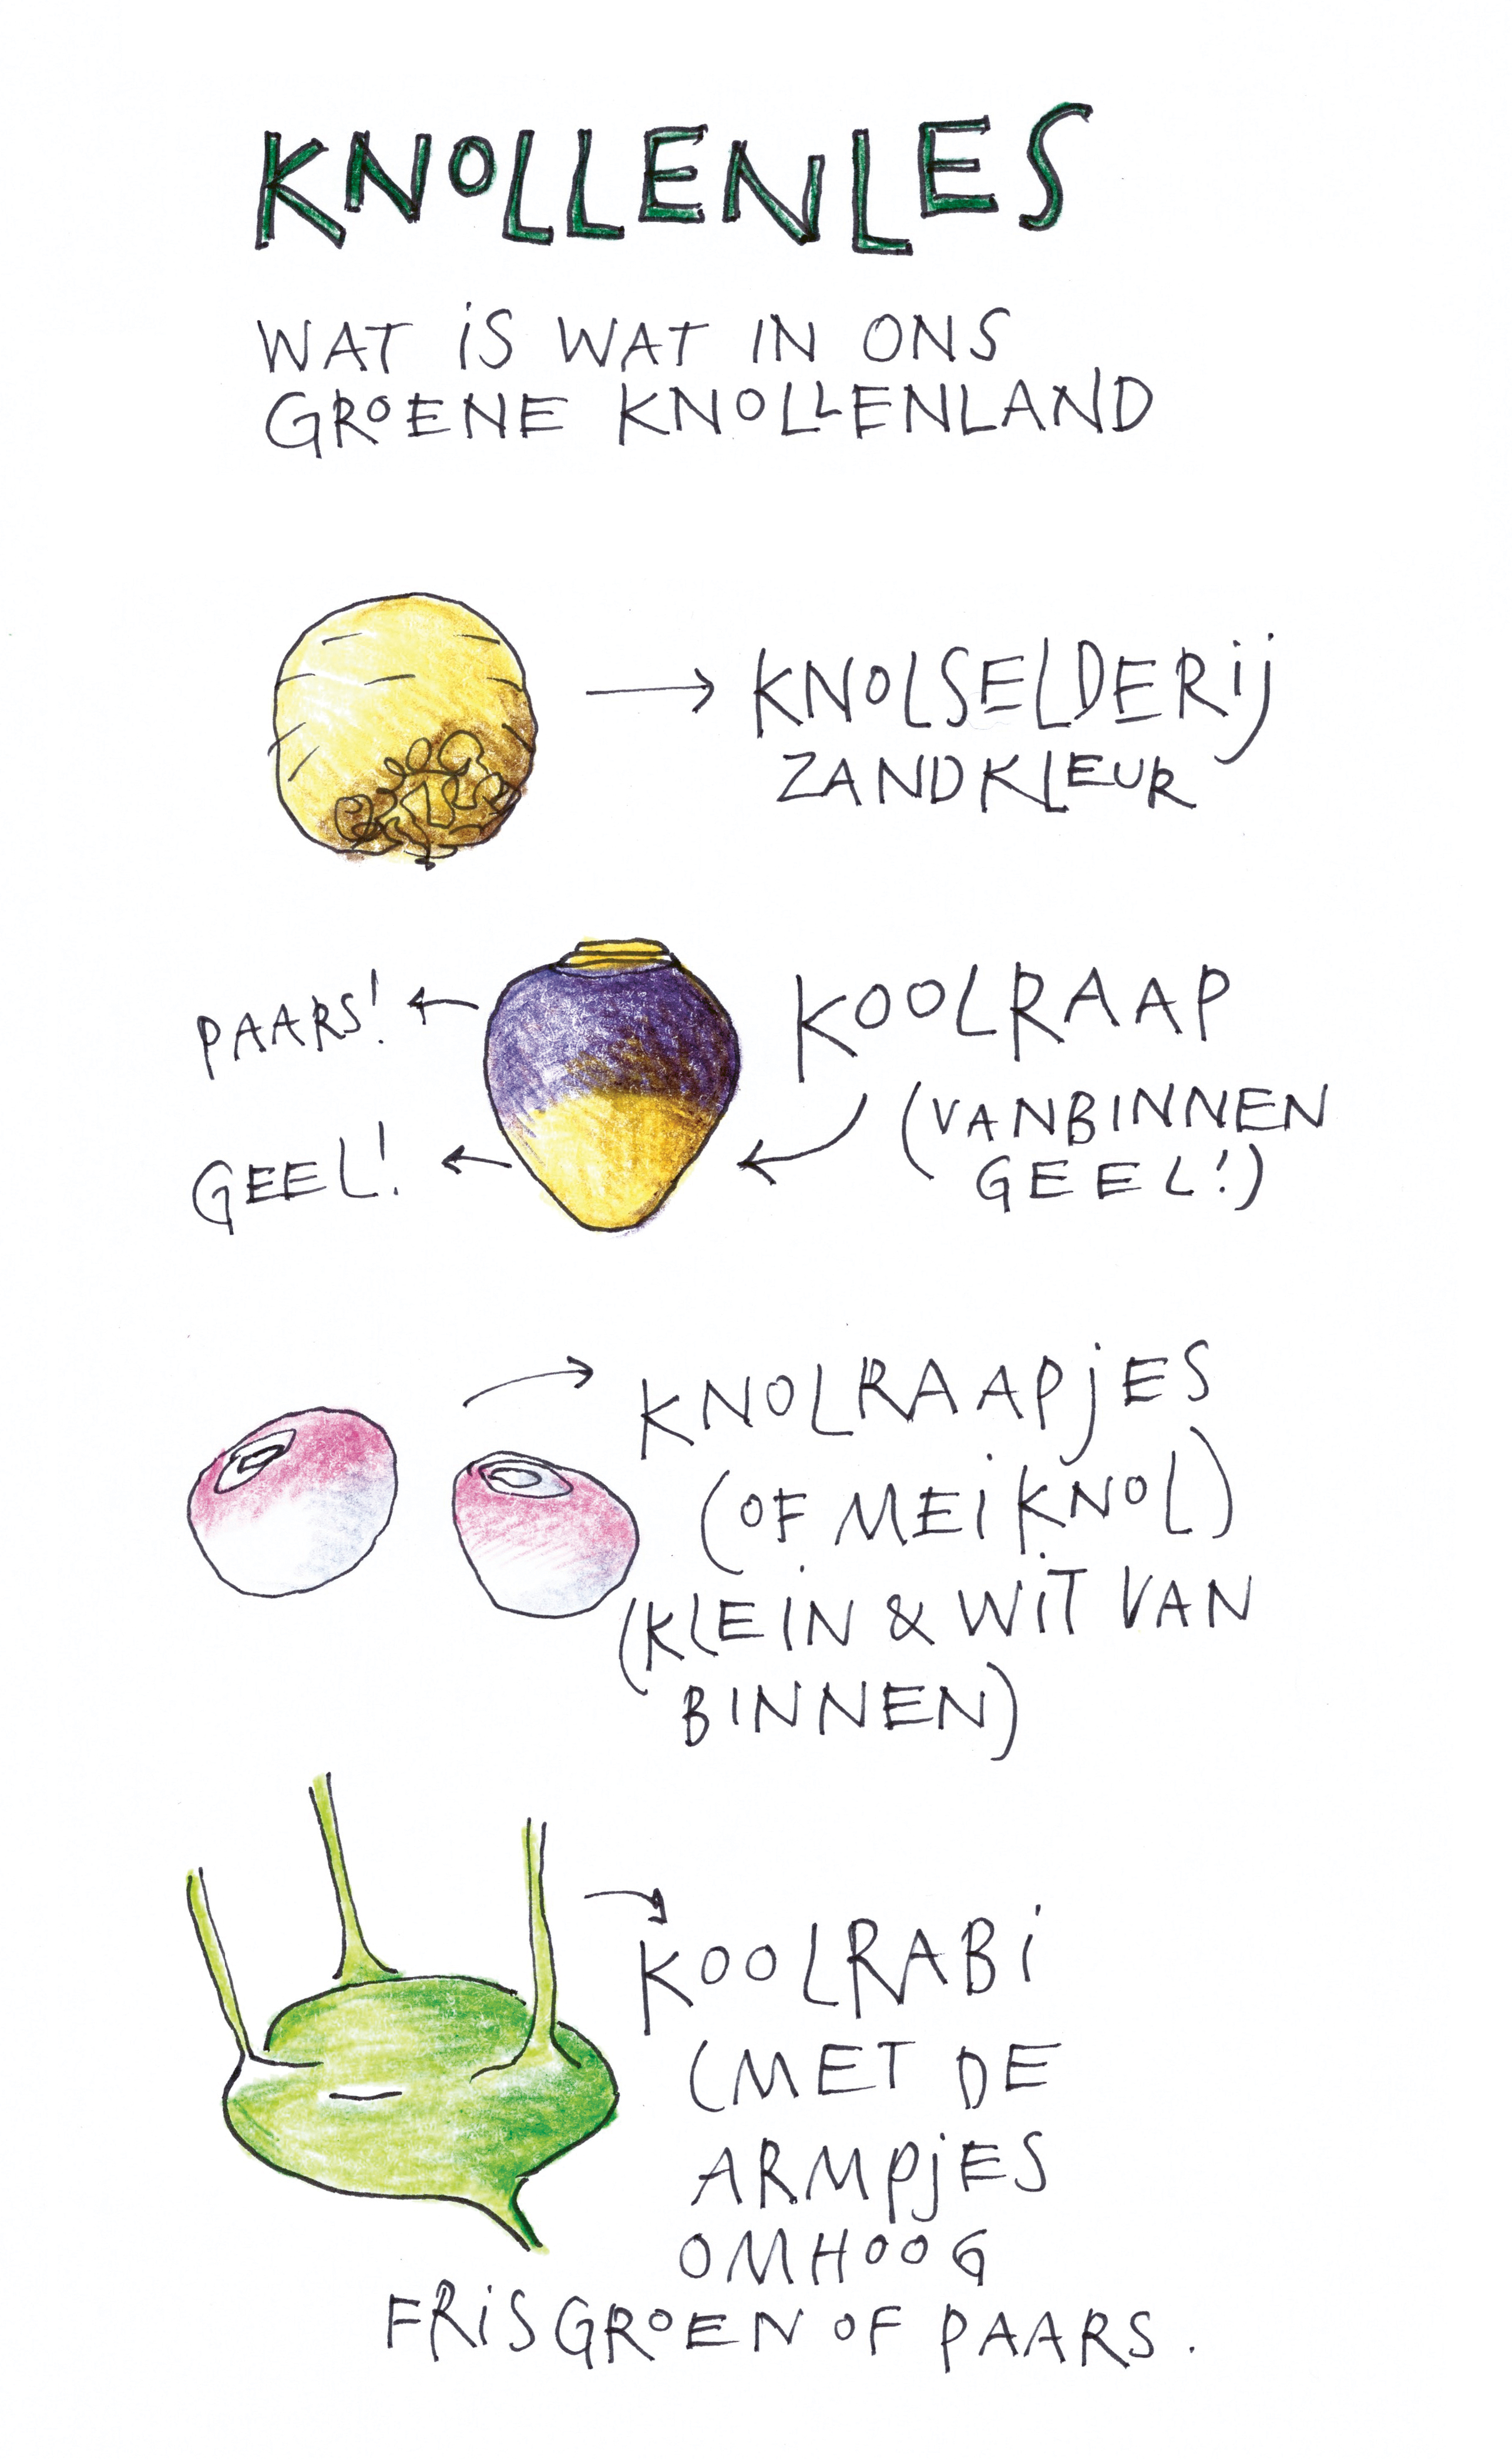 KNOLLENLES
WAT iS WAT IN ONS
GROENE KNOLLENLAND
KNOLSELDERij
ZANDKLEUR
PAARS!
KOOLRAAP
GEEL!
(VANBINNEN
GEEL!)
KNOLRAAPjES
(OF MEiKNOL)
(KLEiN & WiT VAN
BINNEN)
KOOLRABi
(MET DE
ARMPjES
OMHOOG
FRiSGROEN OF PAARS.